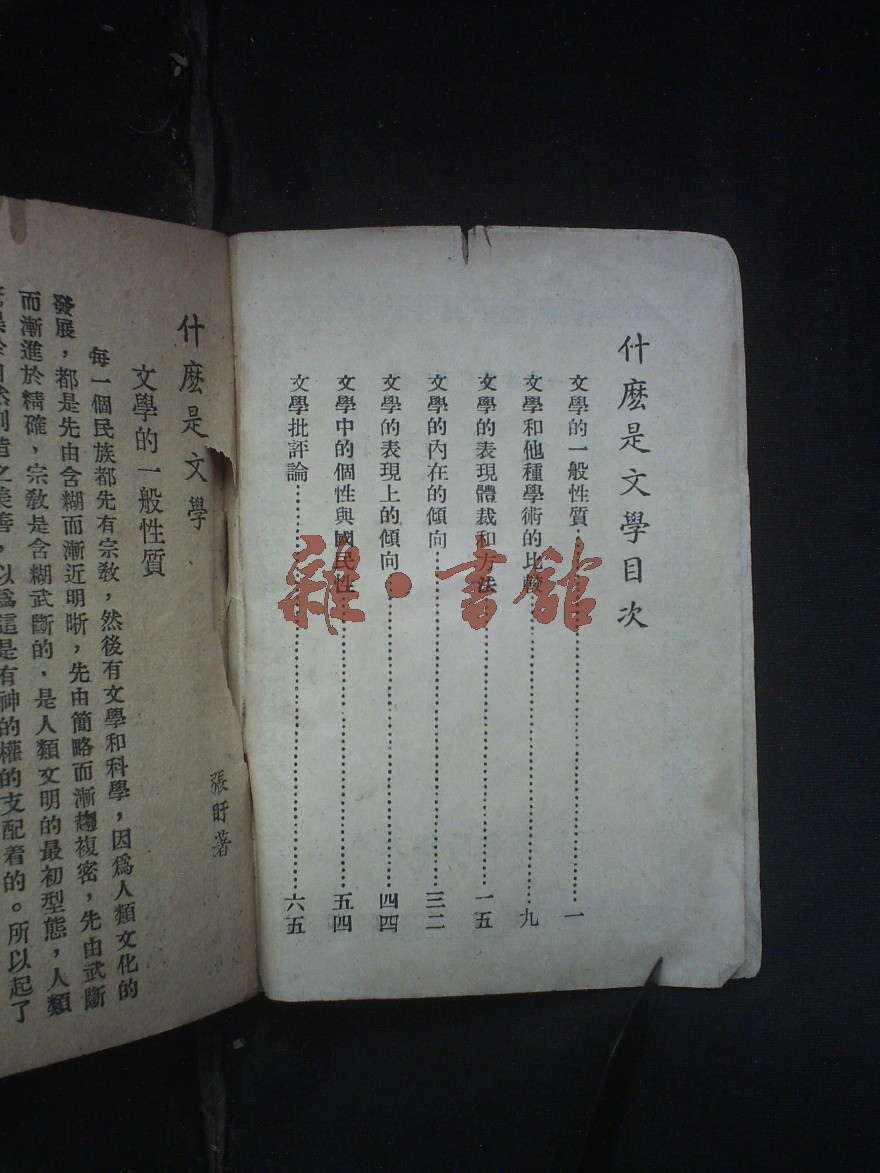 什麼是文學目次
文學的一般性質……一
文學和他種學術的比較……九
文學的表現體裁和方法……一五
文學的內在的傾向……三二
文學的表現上的傾向……四四
文學中的個性與國民性……五四
文學批評論……六五
雜·書館
什麼是文學
張盱著
文學的一般性質
每一個民族都先有宗教,然後有文學和科學,因為人類文化的
發展,都是先由含糊而漸近明晰,先由簡略而漸趨複密,先由武斷
而漸進於精確,宗教是含糊武斷的,是人類文明的最初型態,人類
自然創造之美善,以為這是有神的權的支配着的。所以起了